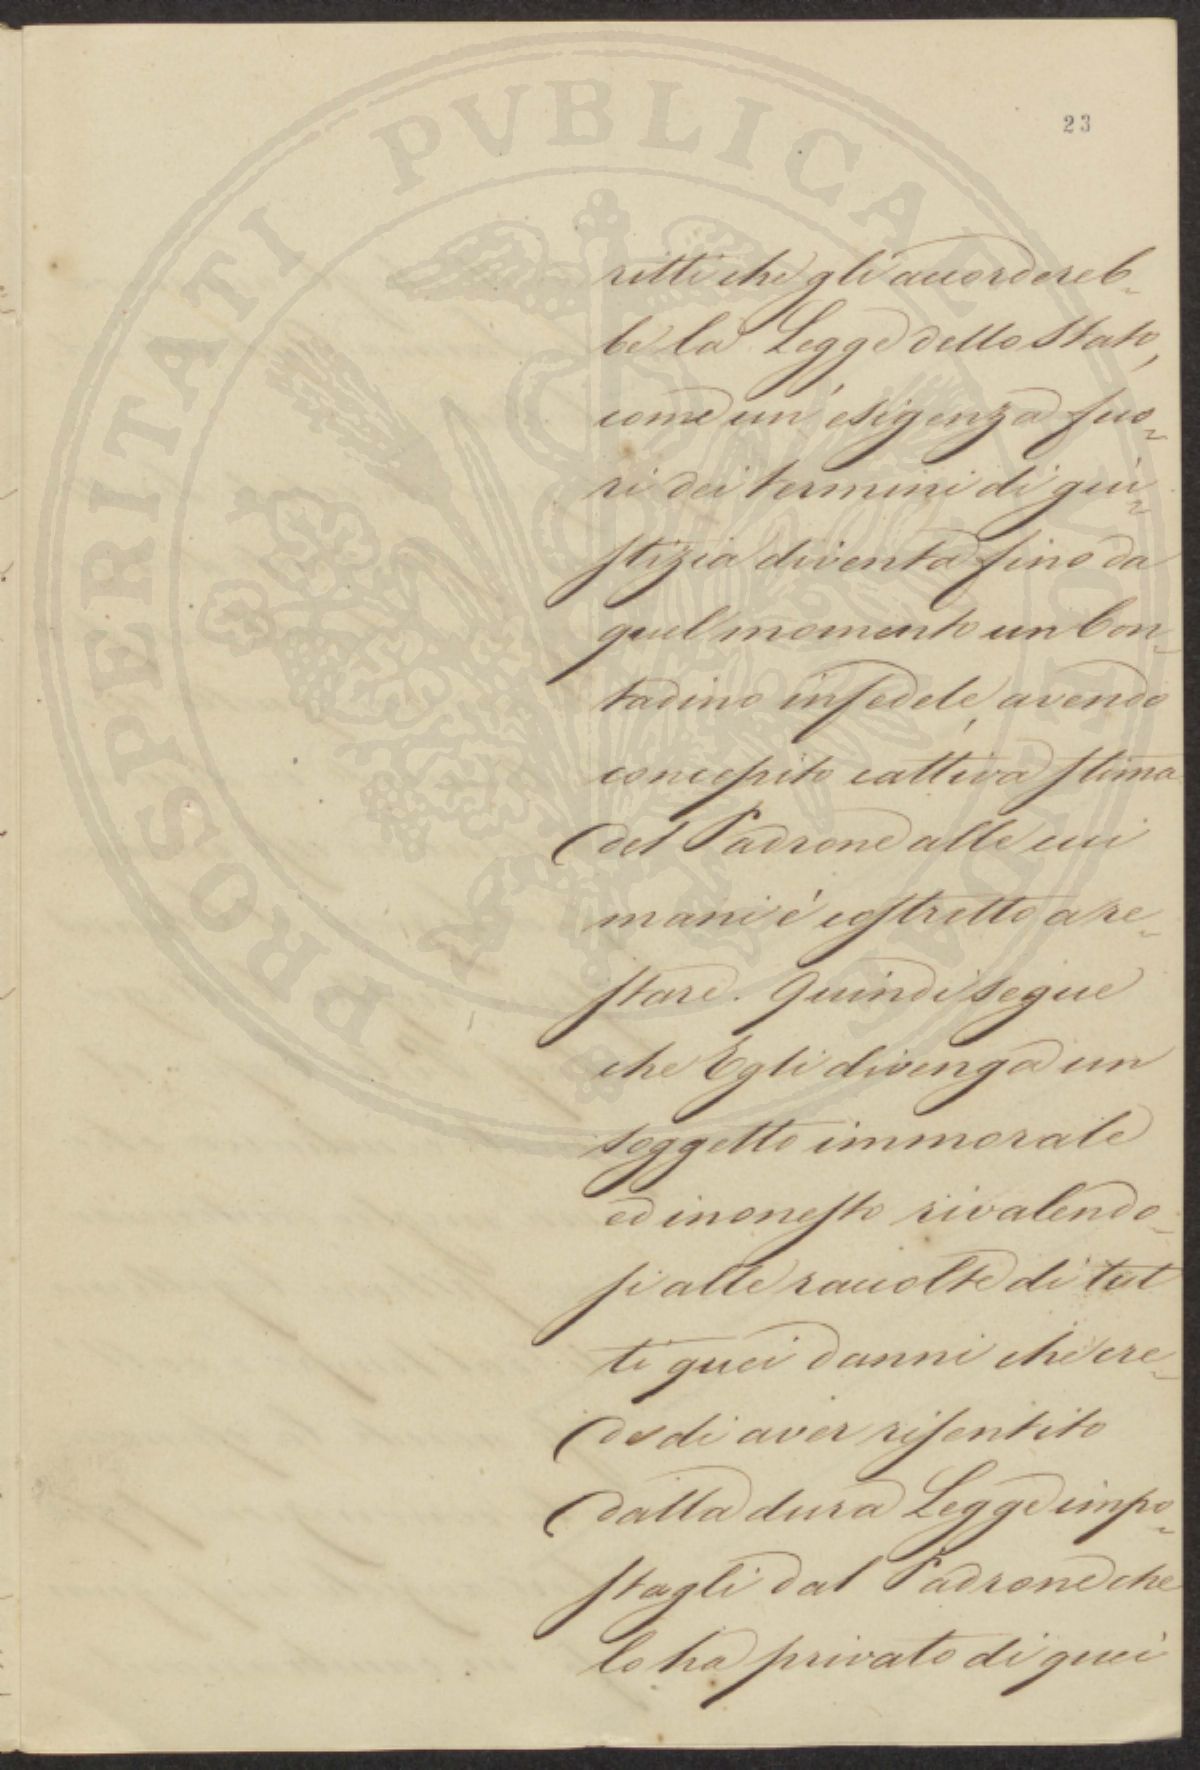 PROSPERITATI PVBLICAE AVGENDAE
23
ritti che gli accordereb-
be la Legge dello Stato,
come un'esigenza fuo-
ri dei termini di giu-
stizia diventa fino da
quel momento un Con-
tadino infedele, avendo
concepito cattiva stima
del Padrone alle cui
mani è costretto a re-
stare. Quindi segue
che Egli divenga un
soggetto immorale
ed inonesto rivalendo-
si alle raccolte di tut
ti quei danni che cre-
de di aver risentito
dalla dura Legge impo-
stagli dal Padrone che
lo ha privato di quei